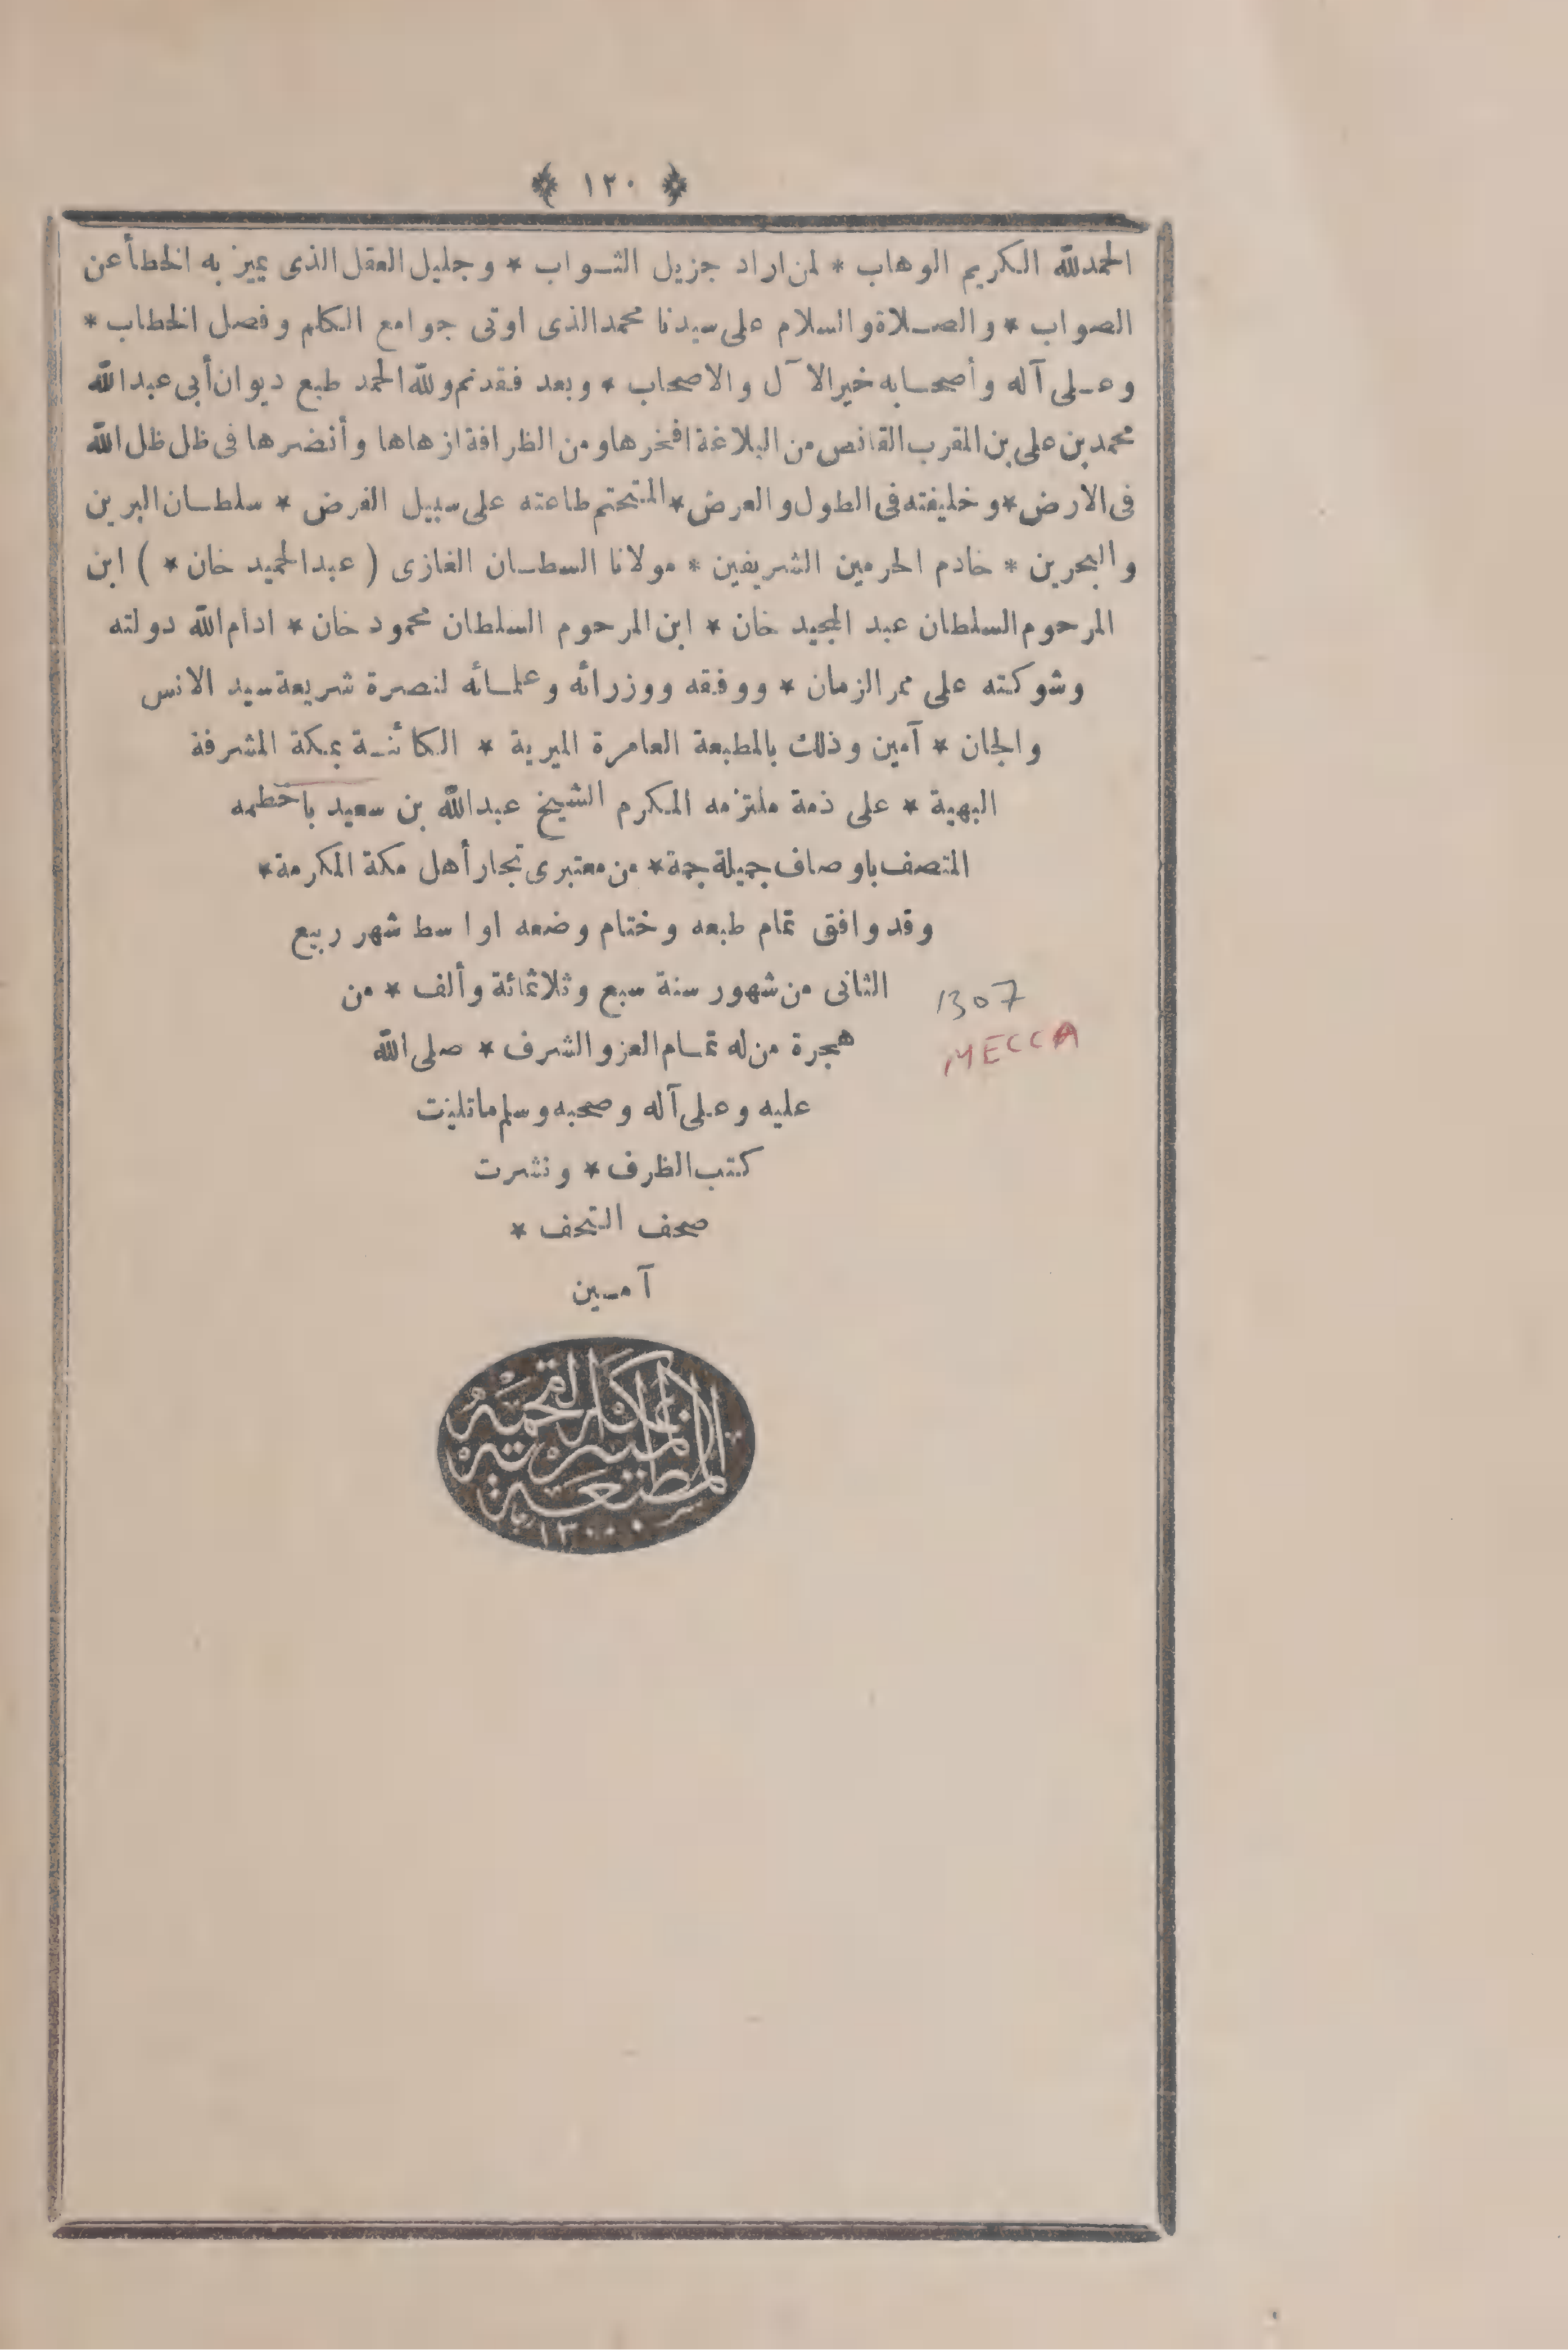 ﴿ ١٢٠ ﴾
الحمد لله الكريم الوهاب * لمن اراد جزيل الثواب * وجليل العقل الذى يميز به الخطأ عن
الصواب * والصلاة والسلام على سيدنا محمد الذى اوتى جوامع الكلم وفصل الخطاب *
وعلى آله وأصحابه خير الآل والاصحاب * وبعد فقد تم ولله الحمد طبع ديوان أبى عبدالله
محمد بن على بن المقرب القانص من البلاغة افخرها ومن الظرافة ازهاها وأنضرها فى ظل ظل الله
فى الارض * وخليفته فى الطول والعرض * المتحتم طاعته على سبيل الفرض * سلطان البرين
والبحرين * خادم الحرمين الشريفين * مولانا السطان الغازى ( عبدالحميد خان * ) ابن
المرحوم السلطان عبد المجيد خان * ابن المرحوم السلطان محمود خان * ادام الله دولته
وشوكته على ممر الزمان * ووفقه ووزرائه وعلمائه لنصرة شريعة سيد الانس
والجان * آمين وذلك بالمطبعة العامرة الميرية * الكائنة بمكة المشرفة
البهية * على ذمة ملتزمه المكرم الشيخ عبدالله بن سعيد باخطمه
المتصف باوصاف جميلة جمة * من معتبرى تجار أهل مكة المكرمة *
وقد وافق تمام طبعه وختام وضعه اواسط شهر ربيع
الثانى من شهور سنة سبع وثلاثمائة وألف * من
1307
هجرة من له تمام العز والشرف * صلى الله
MECCA
عليه وعلى آله وصحبه وسلم ماتليت
كتب الظرف * ونشرت
صحف التحف *
آمين
المطبعة الميرية
١٣٠٠